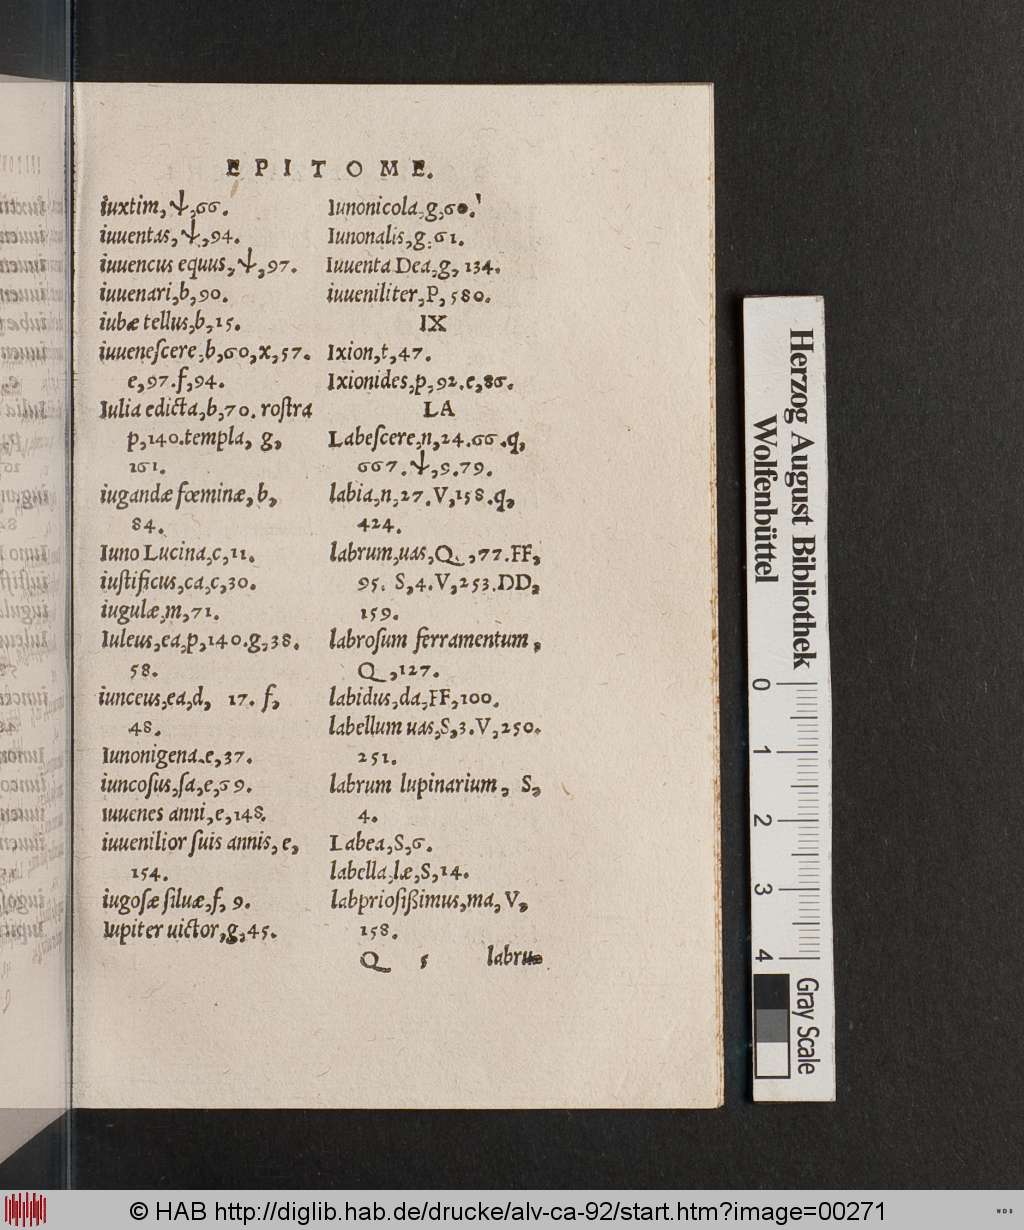 EPITOME.
iuxtim, ψ, 66.
iuuentas, ψ, 94.
iuuencus equus, ψ, 97.
iuuenari, b, 90.
iubæ tellus, b, 15.
iuueneſcere, b, 60, x, 57.
e, 97. f, 94.
Iulia edicta, b, 70. roſtra
p, 140. templa, g,
161.
iugandæ fœminæ, b,
84.
Iuno Lucina, c, 11.
iuſtificus, ca, c, 30.
iugulæ, m, 71.
Iuleus, ea, p, 140. g, 38.
58.
iunceus, ea, d, 17. f,
48.
Iunonigena, e, 37.
iuncoſus, ſa, e, 69.
iuuenes anni, e, 148.
iuuenilior ſuis annis, e,
154.
iugoſæ ſiluæ, f, 9.
Iupiter uictor, g, 45.
Iunonicola, g, 60.
Iunonalis, g, 61.
Iuuenta Dea, g, 134.
iuueniliter, P, 580.
IX
Ixion, t, 47.
Ixionides, p, 92. e, 86.
LA
Labeſcere, n, 24. 66. q,
667. ψ, 9. 79.
labia, n, 27. V, 158. q,
424.
labrum, uas, Q, 77. FF,
95. S, 4. V, 253. DD,
159.
labroſum ferramentum,
Q, 127.
labidus, da, FF, 100.
labellum uas, S, 3. V, 250.
251.
labrum lupinarium, S,
4.
Labea, S, 6.
labella, læ, S, 14.
labprioſißimus, ma, V,
158.
Q 5 labru
Herzog August Bibliothek
Wolfenbüttel
0 1 2 3 4
Gray Scale
© HAB http://diglib.hab.de/drucke/alv-ca-92/start.htm?image=00271